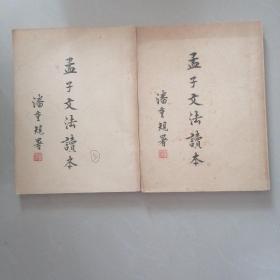 孟子文法讀本
潘重規署
孟子文法讀本
潘重規署